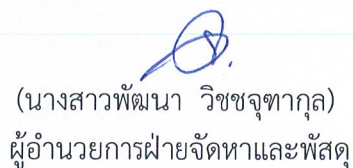 (นางสาวพัฒนา วิชชจุฑากุล)
ผู้อำนวยการฝ่ายจัดหาและพัสดุ